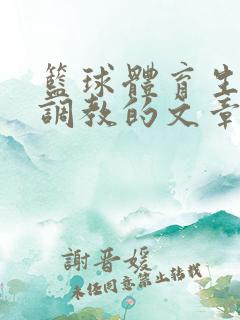 籃球體育生
調教的文章
謝晋媛
未经同意禁止转载